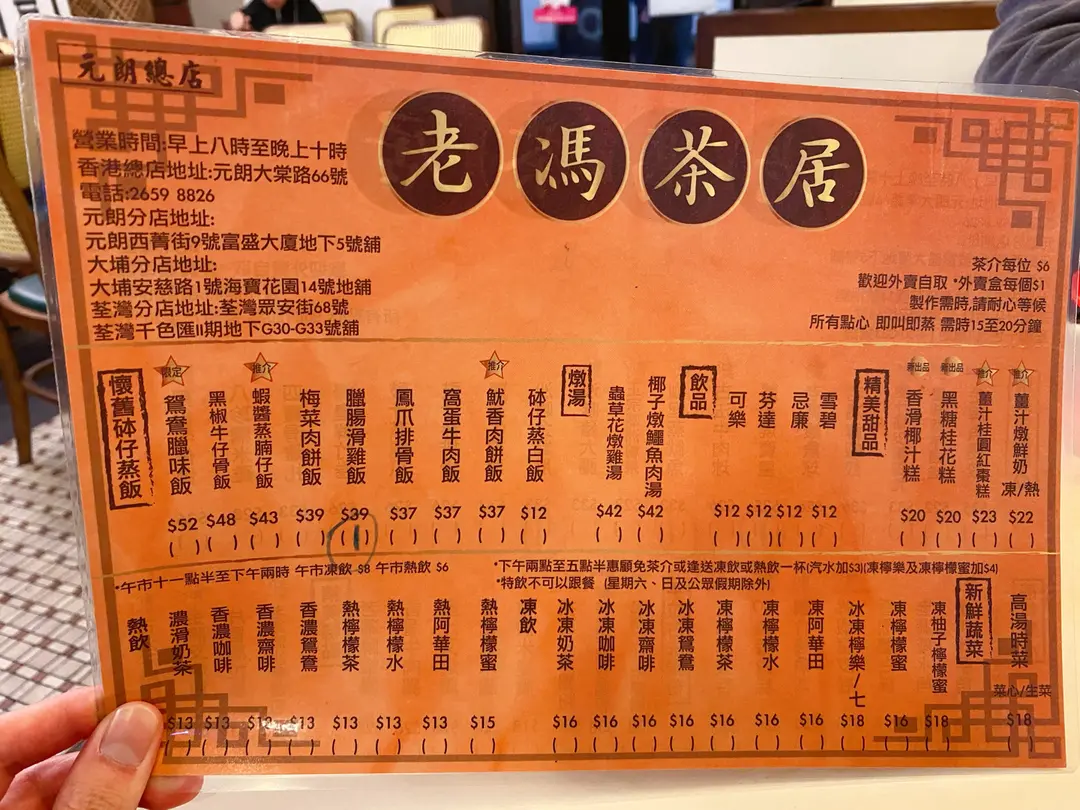 元朗總店
老馮茶居
營業時間:早上八時至晚上十時
香港總店地址:元朗大棠路66號
電話:2659 8826
元朗分店地址:
元朗西菁街9號富盛大廈地下5號舖
大埔分店地址:
大埔安慈路1號海寶花園14號地舖
荃灣分店地址:荃灣眾安街68號
荃灣千色匯II期地下G30-G33號舖
茶介每位 $6
歡迎外賣自取 *外賣盒每個$1
製作需時,請耐心等候
所有點心 即叫即蒸 需時15至20分鐘
懷舊砵仔蒸飯
限定 鴛鴦臘味飯 $52 ( )
黑椒牛仔骨飯 $48 ( )
推介 蝦醬蒸腩仔飯 $43 ( )
梅菜肉餅飯 $39 ( )
臘腸滑雞飯 $39 (1)
鳳爪排骨飯 $37 ( )
窩蛋牛肉飯 $37 ( )
推介 魷香肉餅飯 $37 ( )
砵仔蒸白飯 $12 ( )
燉湯
蟲草花燉雞湯 $42 ( )
椰子燉鱷魚肉湯 $42 ( )
飲品
可樂 $12 ( )
芬達 $12 ( )
忌廉 $12 ( )
雪碧 $12 ( )
精美甜品
新出品 香滑椰汁糕 $20 ( )
新出品 黑糖桂花糕 $20 ( )
推介 薑汁桂圓紅棗糕 $23 ( )
推介 薑汁燉鮮奶 凍/熱 $22 ( )
*午市十一點半至下午兩時 午市凍飲 $8 午市熱飲 $6
*下午兩點至五點半惠顧免茶介或逢送凍飲或熱飲一杯(汽水加$3)(凍檸樂及凍檸檬蜜加$4)
*特飲不可以跟餐 (星期六、日及公眾假期除外)
熱飲
濃滑奶茶 $13 ( )
香濃咖啡 $13 ( )
香濃齋啡 $13 ( )
香濃鴛鴦 $13 ( )
熱檸檬茶 $13 ( )
熱檸檬水 $13 ( )
熱阿華田 $13 ( )
熱檸檬蜜 $15 ( )
凍飲
冰凍奶茶 $16 ( )
冰凍咖啡 $16 ( )
冰凍齋啡 $16 ( )
冰凍鴛鴦 $16 ( )
凍檸檬茶 $16 ( )
凍檸檬水 $16 ( )
凍阿華田 $16 ( )
冰凍檸樂/七 $18 ( )
凍檸檬蜜 $16 ( )
凍柚子檸檬蜜 $18 ( )
新鮮蔬菜
高湯時菜
菜心/生菜 $18 ( )